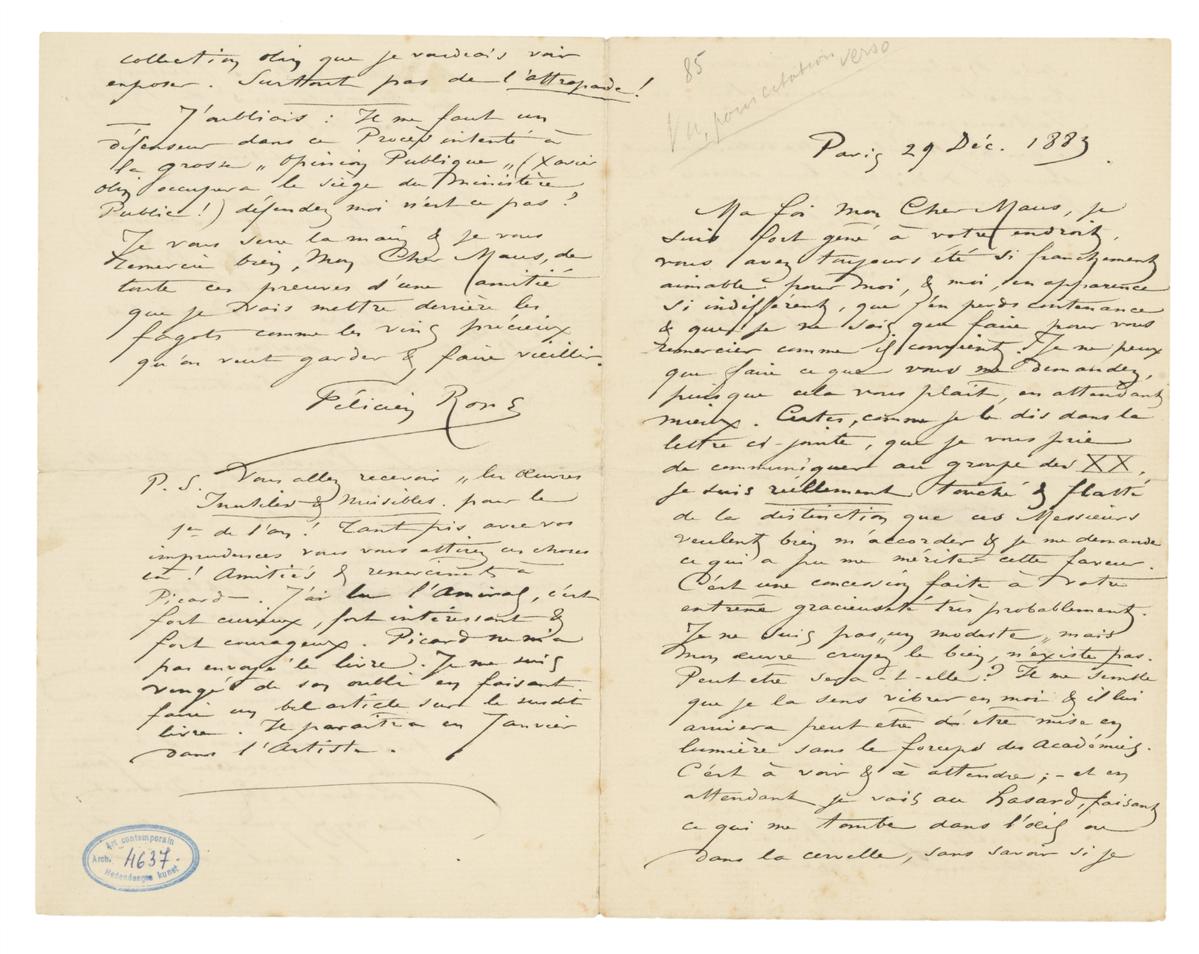 85
Vu, pour citation verso
Paris 29 Déc. 1883.
Ma foi mon Cher Maus, je
suis fort gêné à votre endroit,
vous avez toujours été si franchement
aimable pour moi, & moi, en apparence
si indifférent, que j'en perds contenance
& que je ne sais que faire pour vous
remercier comme il convient. Je ne peux
que faire ce que vous me demandez,
puisque cela vous plaît, en attendant
mieux. Certes, comme je le dis dans la
lettre ci-jointe, que je vous prie
de communiquer au groupe des XX,
je suis réellement touché & flatté
de la distinction que ces Messieurs
veulent bien m'accorder & je me demande
ce qui a pu me mériter cette faveur.
C'est une concession faite à votre
extrême gracieuseté très probablement.
Je ne suis pas „un modeste„ mais
mon œuvre croyez le bien, n'existe pas.
Peut être sera-t-elle? Il me semble
que je la sens vibrer en moi & il lui
arrivera peut être d'être mise en
lumière sans le forceps des Académies.
C'est à voir & à attendre; - et en
attendant je vais au hasard, faisant
ce qui me tombe dans l'œil ou
dans la cervelle, sans savoir si je
collection Olin que je voudrais voir
exposer. Surtout pas de l'attrapade!
J'oubliais: Il me faut un
défenseur dans ce Procès intenté à
la grosse „Opinion Publique„ (Xavier
Olin occupera le siège du Ministère
Public!) défendez moi n'est ce pas?
Je vous serre la main & je vous
remercie bien, Mon Cher Maus, de
toute ces preuves d'une amitié
que je vais mettre derrière les
fagots comme les vins précieux
qu'on veut garder & faire vieillir.
Félicien Rops
P.S. Vous allez recevoir „les Œuvres
Inutiles & Nuisibles. pour le
1er de l'an! Tant pis avec vos
imprudences vous vous attirez ces choses
là! Amitiés & remerciments à
Picard. J'ai lu l'Amiral, c'est
fort curieux, fort intéressant &
fort courageux. Picard ne m'a
pas envoyé le livre. Je me suis
vengé de son oubli en faisant
faire un bel article sur le susdit
livre. Il paraîtra en Janvier
dans l'Artiste.
Art contemporain
Arch. 4637.
Hedendaagse kunst